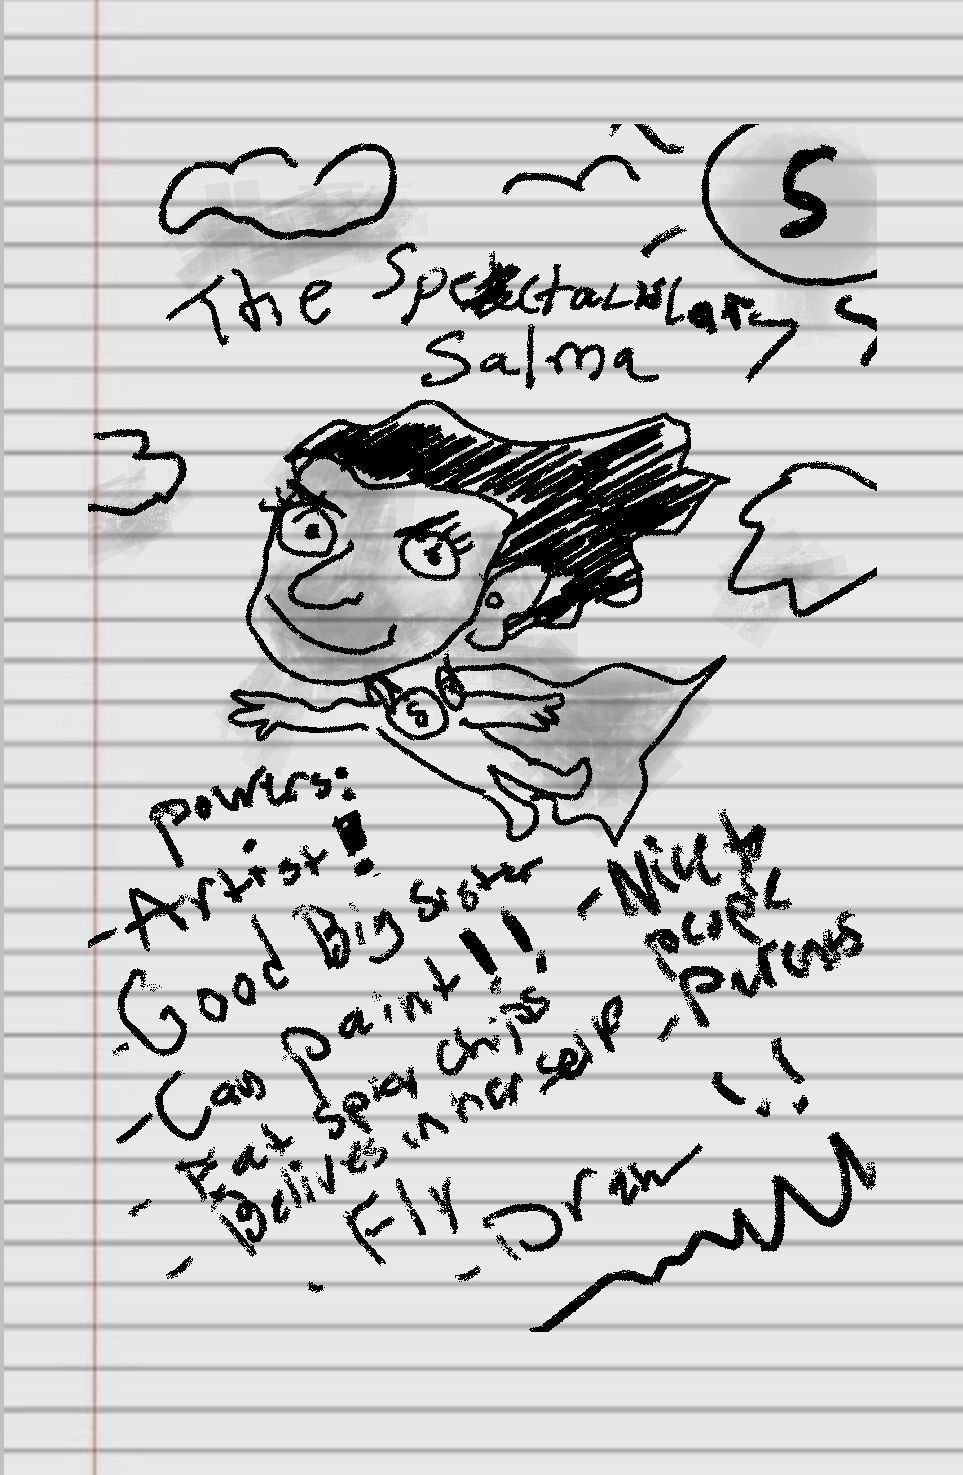 S
The Spectacular
Salma
S
powers:
- Artist!
- Good Big sister
- Can paint!!
- Eat spicy chips
- Belives in her self
- Fly
- Draw
- Nice to
peopl
- parents
!!